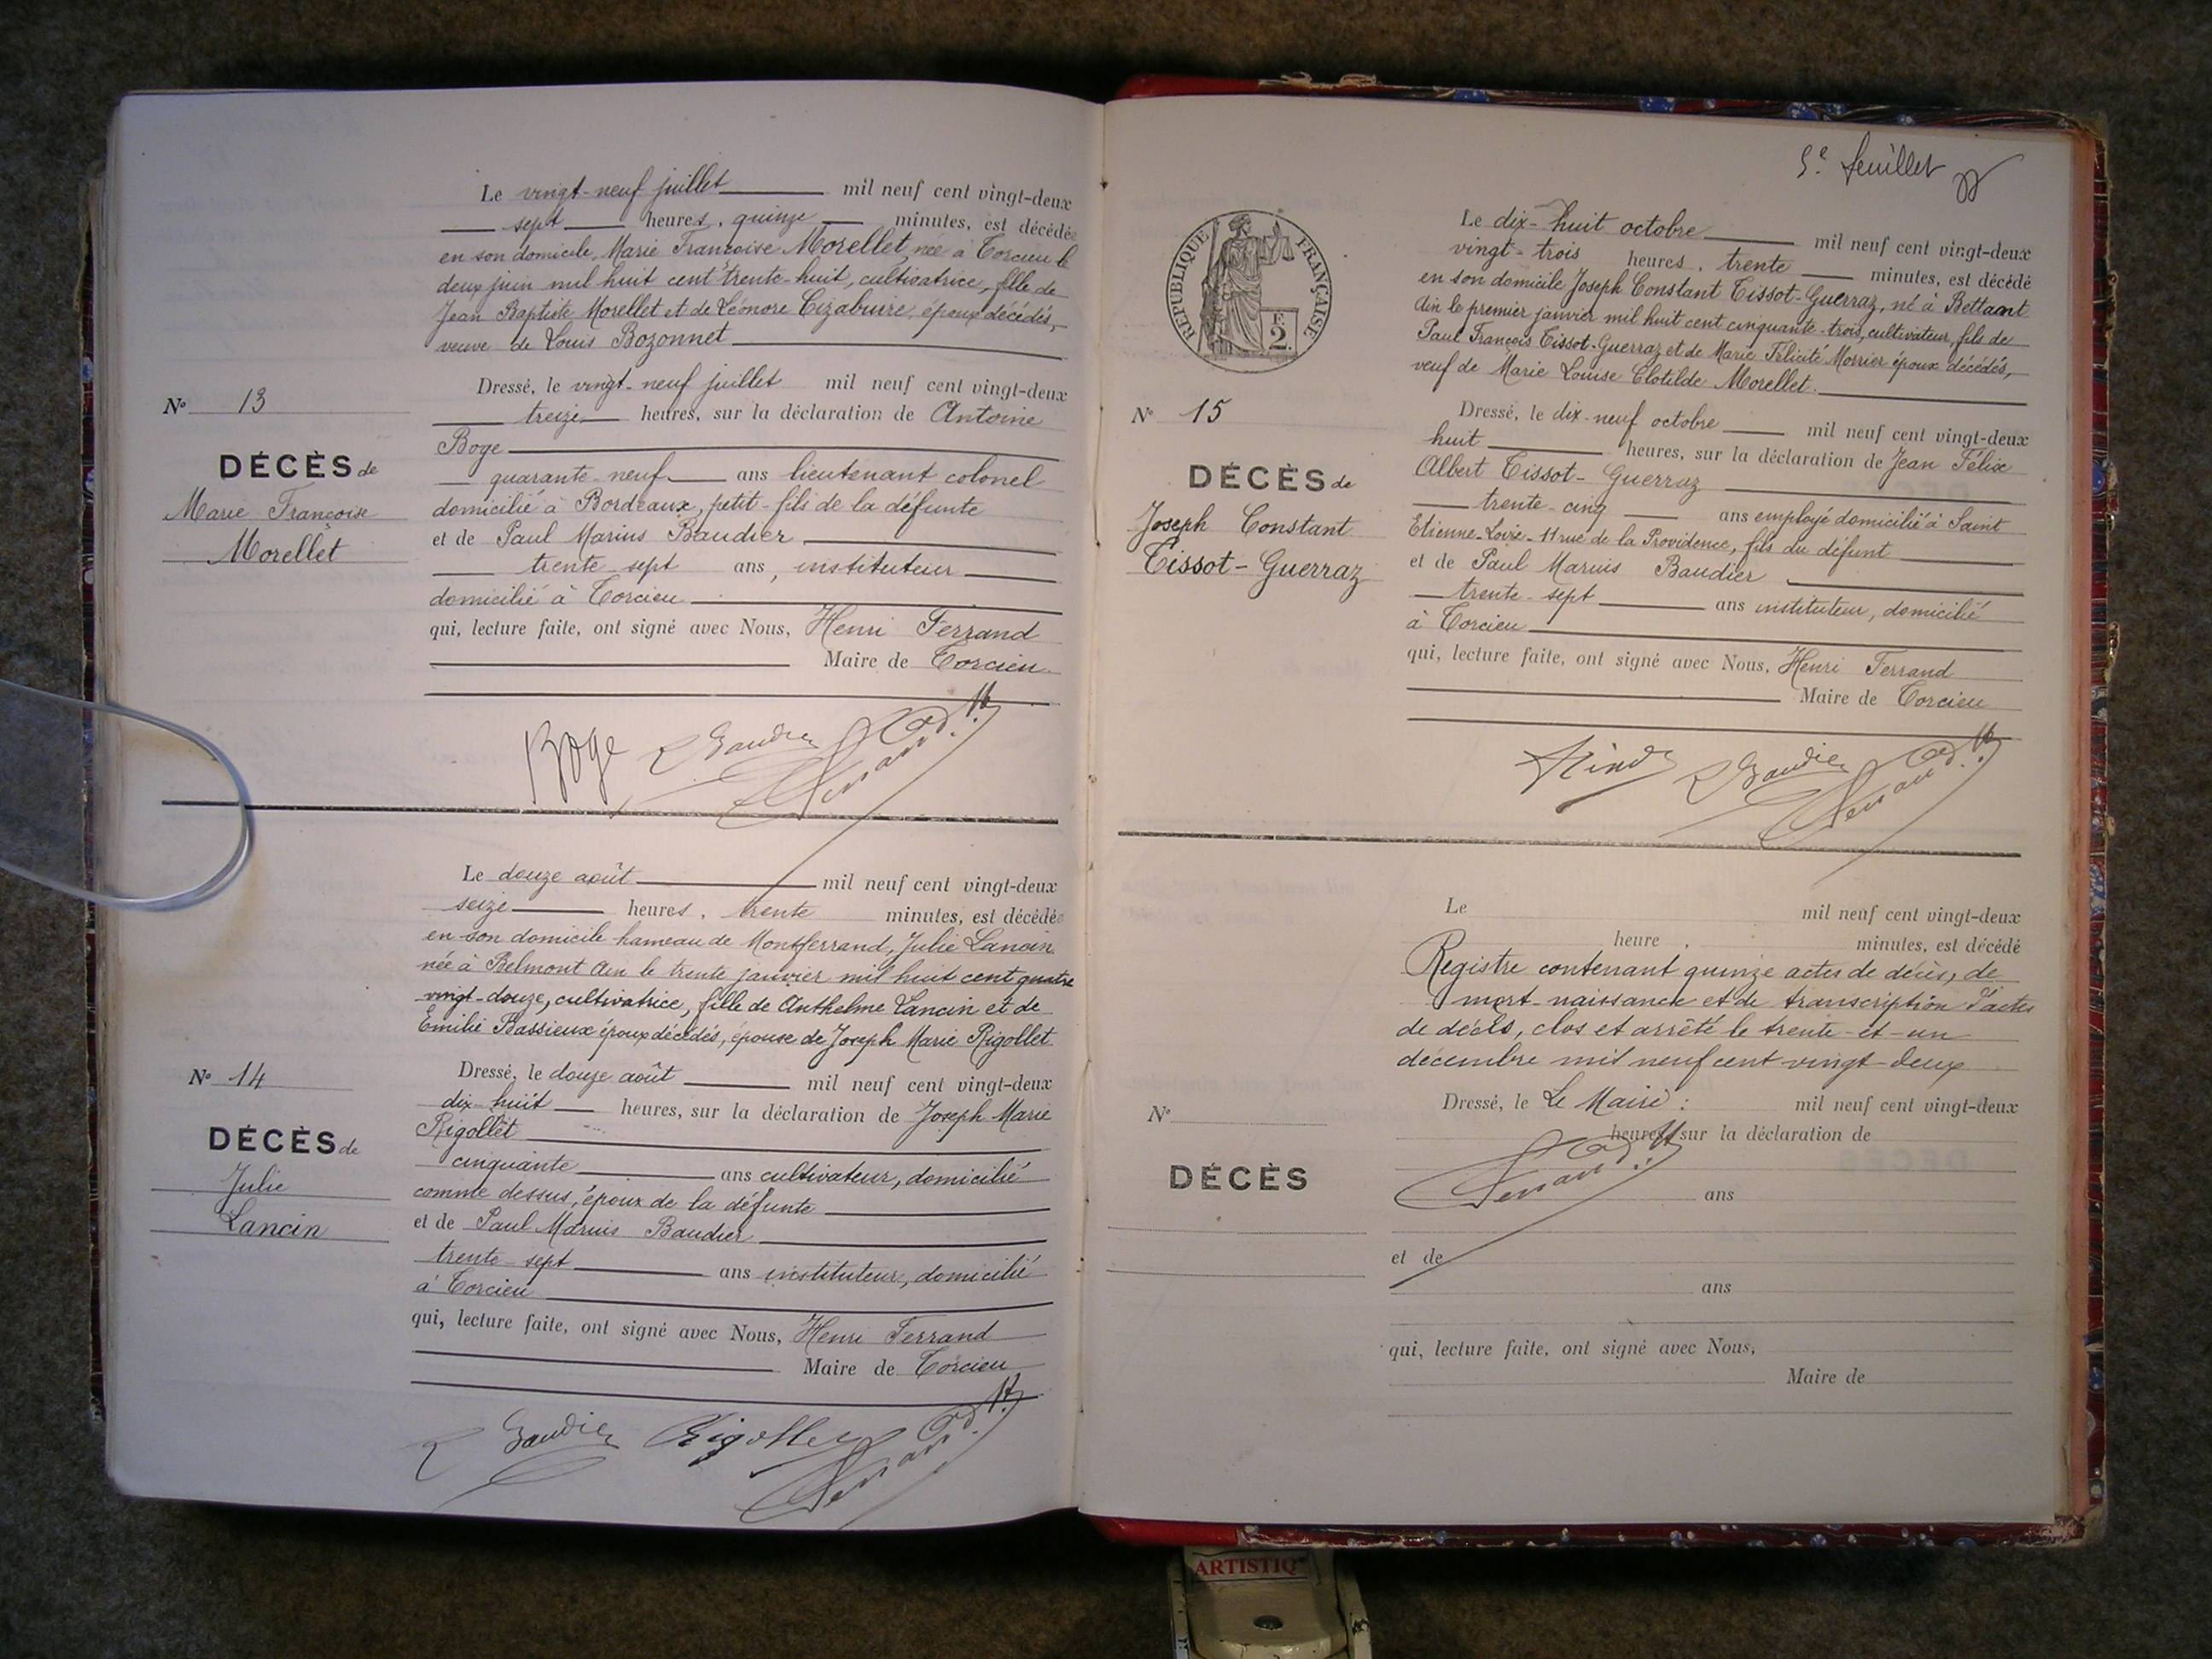 Le vingt-neuf juillet mil neuf cent vingt-deux
sept heures, quinze minutes, est décédée
en son domicile, Marie Françoise Morellet, née à Torcieu le
deux juin mil huit cent trente-huit, cultivatrice, fille de
Jean Baptiste Morellet et de Léonore Cizabuire, époux décédés,
veuve de Louis Bozonnet
Dressé, le vingt-neuf juillet mil neuf cent vingt-deux
treize heures, sur la déclaration de Antoine
Boge
quarante-neuf ans lieutenant colonel
domicilié à Bordeaux, petit-fils de la défunte
et de Paul Marius Baudier
trente-sept ans, instituteur
domicilié à Torcieu
qui, lecture faite, ont signé avec Nous, Henri Ferrand
Maire de Torcieu
N° 13
DÉCÈS de
Marie Françoise
Morellet
Boge Baudier Ferrand
Le douze août mil neuf cent vingt-deux
seize heures, trente minutes, est décédée
en son domicile hameau de Montferrand, Julie Lancin
née à Belmont Ain le trente janvier mil huit cent quatre
vingt-douze, cultivatrice, fille de Anthelme Lancin et de
Emilie Bassieux époux décédés, épouse de Joseph Marie Rigollet
Dressé, le douze août mil neuf cent vingt-deux
dix-huit heures, sur la déclaration de Joseph Marie
Rigollet
cinquante ans cultivateur, domicilié
comme dessus, époux de la défunte
et de Paul Marius Baudier
trente-sept ans instituteur, domicilié
à Torcieu
qui, lecture faite, ont signé avec Nous, Henri Ferrand
Maire de Torcieu
N° 14
DÉCÈS de
Julie
Lancin
Baudier Rigollet Ferrand
5e feuillet
REPUBLIQUE FRANÇAISE
F.
2.
Le dix-huit octobre mil neuf cent vingt-deux
vingt-trois heures, trente minutes, est décédé
en son domicile Joseph Constant Tissot-Guerraz, né à Bettant
Ain le premier janvier mil huit cent cinquante-trois, cultivateur, fils de
Paul François Tissot-Guerraz et de Marie Félicité Morrier époux décédés,
veuf de Marie Louise Clotilde Morellet.
Dressé, le dix-neuf octobre mil neuf cent vingt-deux
huit heures, sur la déclaration de Jean Félix
Albert Tissot-Guerraz
trente-cinq ans employé domicilié à Saint
Etienne-Loire-11 rue de la Providence, fils du défunt
et de Paul Marius Baudier
trente-sept ans instituteur, domicilié
à Torcieu
qui, lecture faite, ont signé avec Nous, Henri Ferrand
Maire de Torcieu
N° 15
DÉCÈS de
Joseph Constant
Tissot-Guerraz
Baudier Ferrand
Le mil neuf cent vingt-deux
heure , minutes, est décédé
Registre contenant quinze actes de décès, de
mort-naissance et de transcription d'actes
de décès, clos et arrêté le trente-et-un
décembre mil neuf cent vingt-deux
Dressé, le Le Maire : mil neuf cent vingt-deux
heures, sur la déclaration de
Ferrand
ans
et de
ans
qui, lecture faite, ont signé avec Nous,
Maire de
N°
DÉCÈS
ARTISTIQ